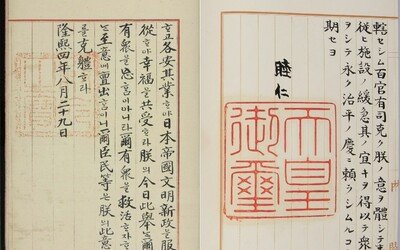 轄セシム百官有司克ク朕ノ意ヲ體シテ
從ヒ施設ノ緩急其ノ宜キヲ得以テ衆
ヲシテ永ク治平ノ慶ニ賴ラシムル
期セヨ
睦仁
天皇
御璽
ᄒᆞ고各安其業ᄒᆞ야日本帝國文明新政을服
從ᄒᆞ야幸福을共受ᄒᆞ라朕의今日此擧ᄂᆞᆫ爾
有衆을忘홈이아니라爾有衆을救活ᄒᆞ쟈ᄒᆞ
ᄂᆞᆫ至意에亶出홈이니爾臣民等은朕의此意
를克體ᄒᆞ라
隆熙四年八月二十九日